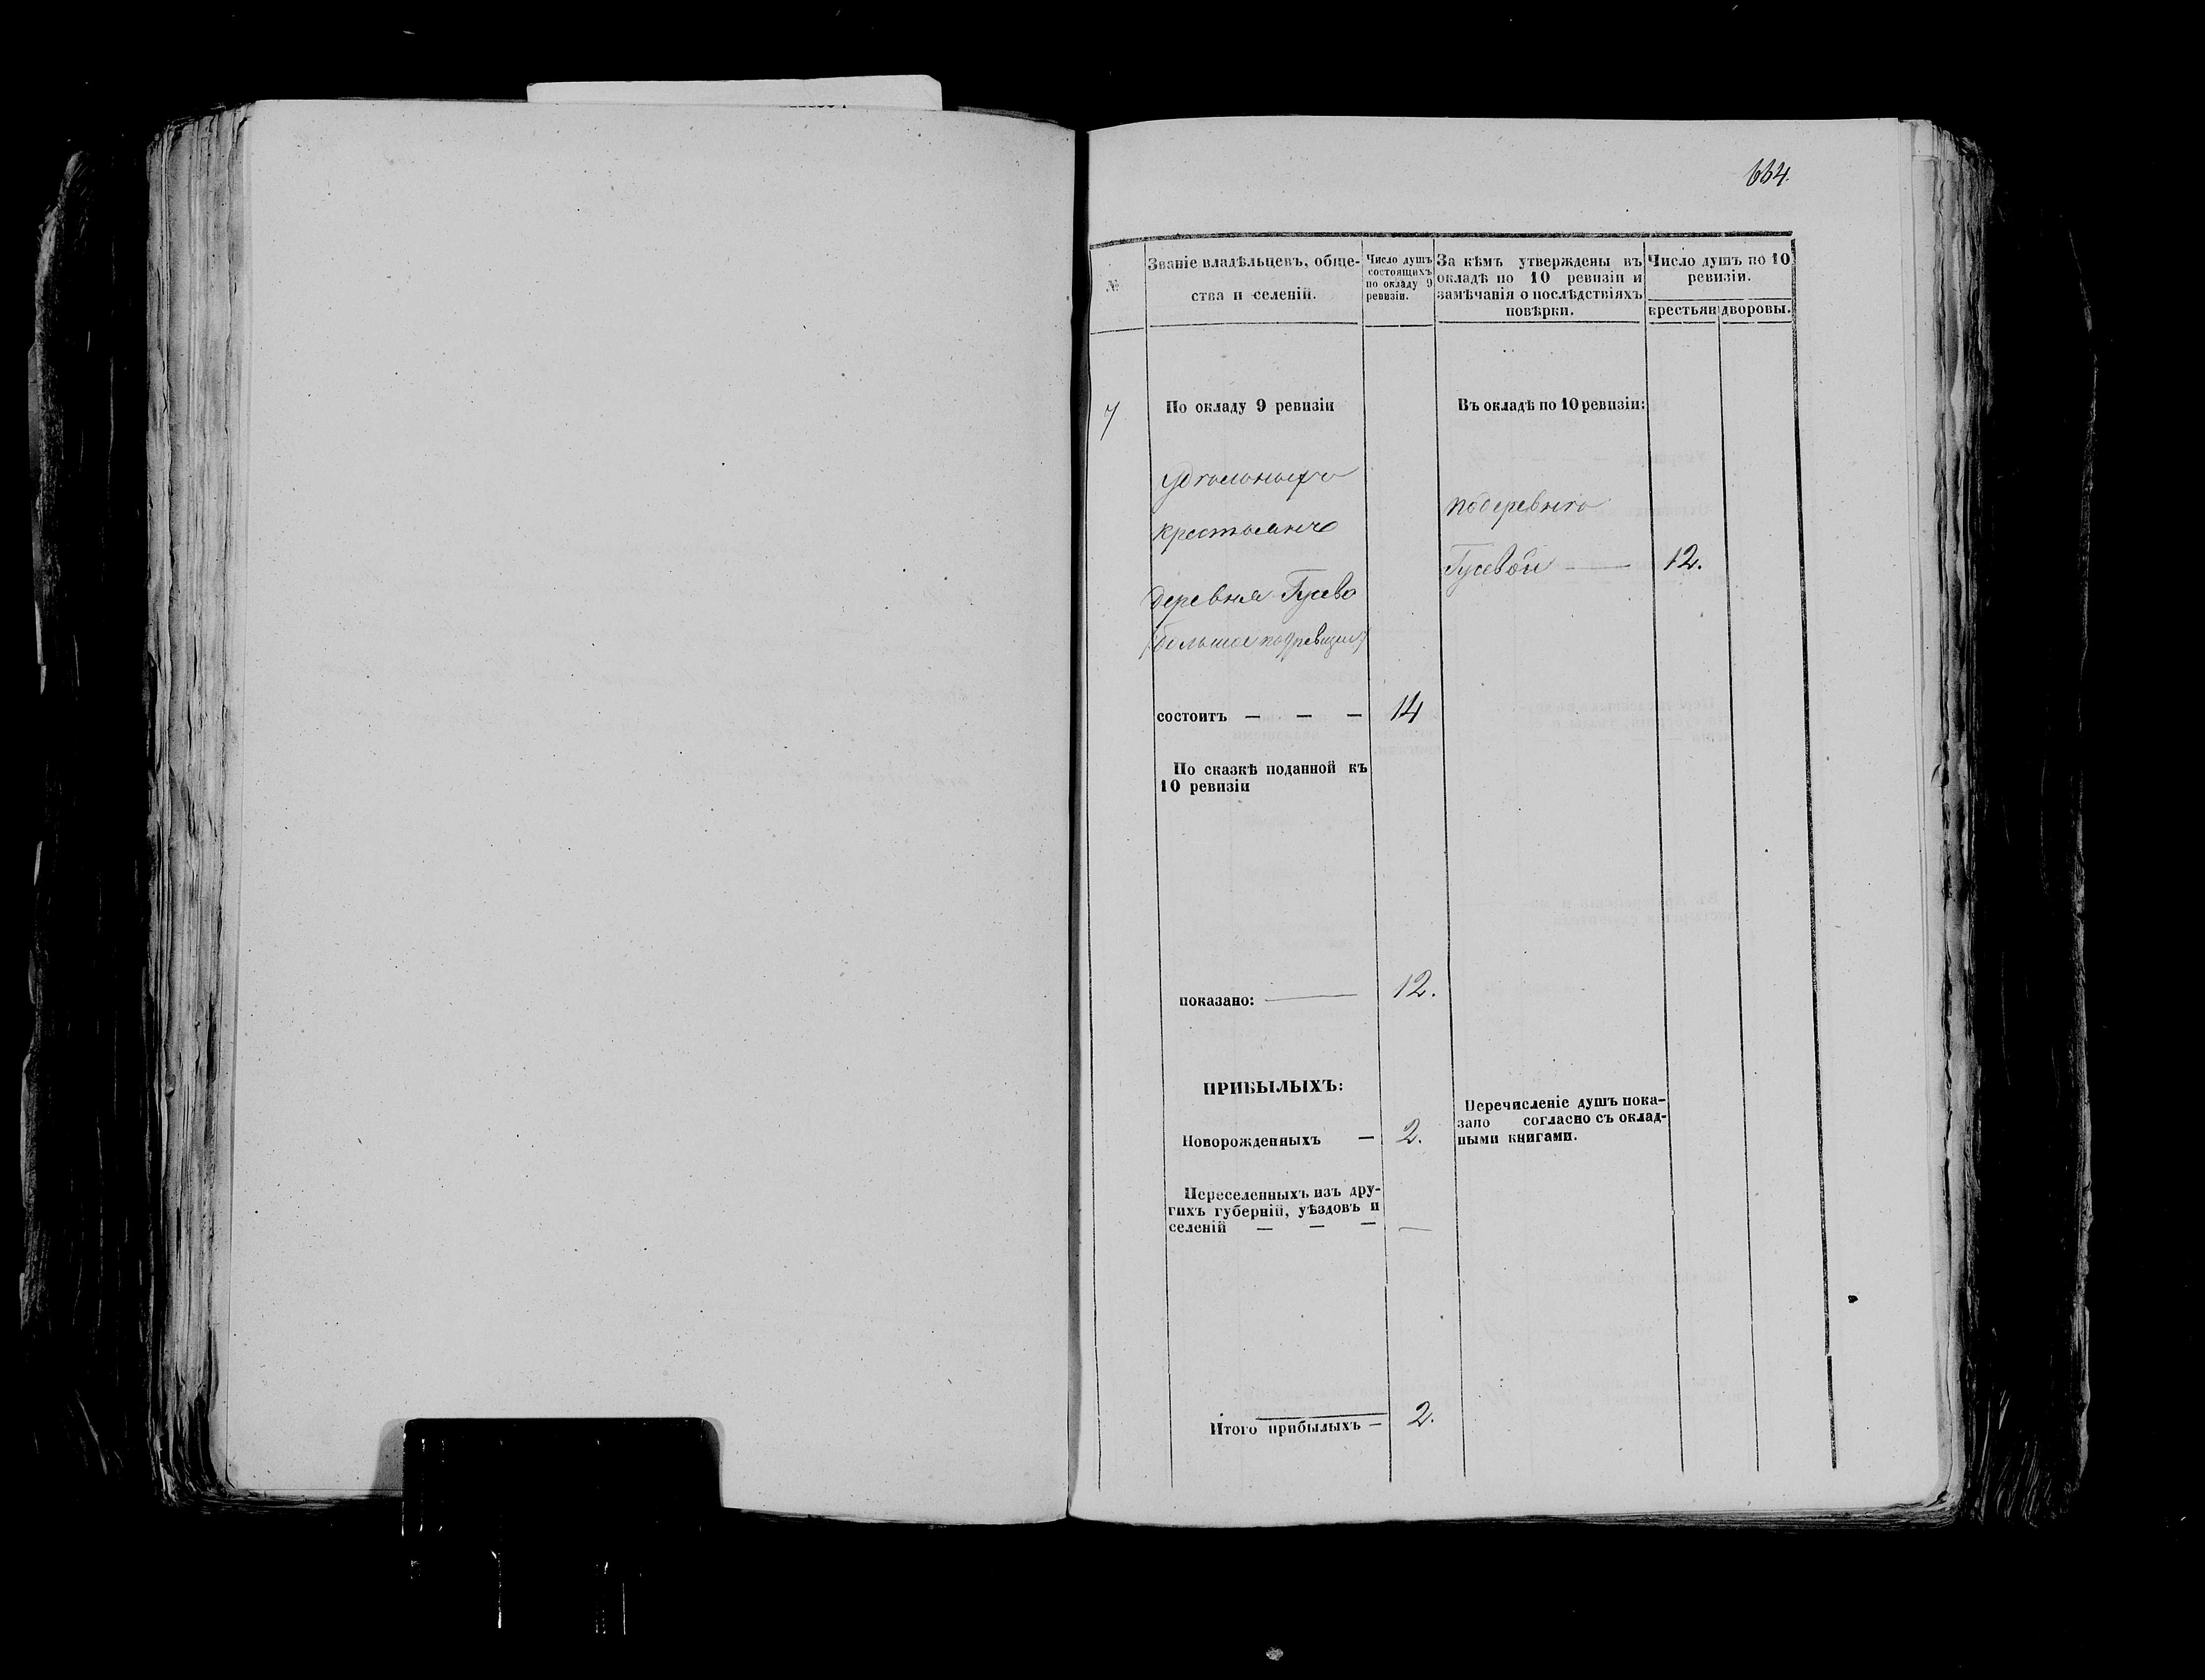 664.
№
Званіе владѣльцевъ, обще-
ства и селеній.
Число душъ
состоящихъ
по окладу 9
ревизіи.
За кѣмъ утверждены въ
окладѣ по 10 ревизіи и
замѣчанія о послѣдствіяхъ
повѣрки.
Число душъ по 10
ревизіи.
крестьян
дворовы.
7
По окладу 9 ревизіи
Въ окладѣ по 10 ревизіи:
Удѣльныхъ
крестьянъ
деревня Гусево
состоитъ — — — 14
по деревнѣ
Гусевой — 12.
По сказкѣ поданной къ
10 ревизіи
показано: — 12.
ПРИБЫЛЫХЪ:
Новорожденныхъ — 2.
Переселенныхъ изъ дру-
гихъ губерній, уѣздовъ и
селеній — — — —
Перечисленіе душъ пока-
зано согласно съ оклад-
ными книгами.
Итого прибылыхъ — 2.